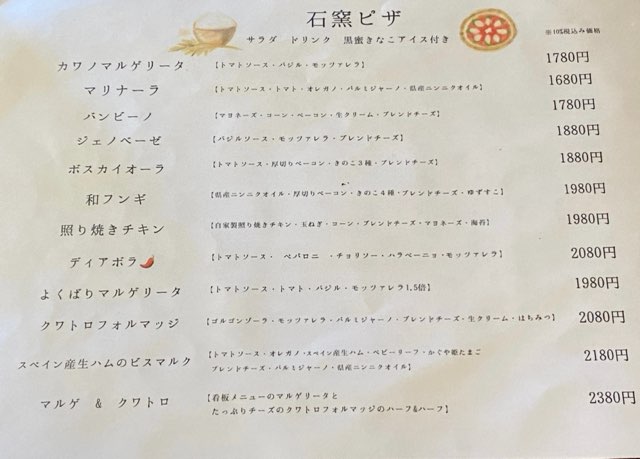 石窯ピザ
サラダ ドリンク 黒蜜きなこアイス付き
※10%税込み価格
カワノマルゲリータ 【トマトソース・バジル・モッツァレラ】 1780円
マリナーラ 【トマトソース・トマト・オレガノ・パルミジャーノ・県産ニンニクオイル】 1680円
バンビーノ 【マヨネーズ・コーン・ベーコン・生クリーム・ブレンドチーズ】 1780円
ジェノベーゼ 【バジルソース・モッツァレラ・ブレンドチーズ】 1880円
ボスカイオーラ 【トマトソース・厚切りベーコン・きのこ3種・ブレンドチーズ】 1880円
和フンギ 【県産ニンニクオイル・厚切りベーコン・きのこ4種・ブレンドチーズ・ゆずすこ】 1980円
照り焼きチキン 【自家製照り焼きチキン・玉ねぎ・コーン・ブレンドチーズ・マヨネーズ・海苔】 1980円
ディアボラ 【トマトソース・ ペパロニ ・チョリソー・ハラペーニョ・モッツァレラ】 2080円
よくばりマルゲリータ 【トマトソース・トマト・バジル・モッツァレラ1.5倍】 1980円
クワトロフォルマッジ 【ゴルゴンゾーラ・モッツァレラ・パルミジャーノ・ブレンドチーズ・生クリーム・はちみつ】 2080円
スペイン産生ハムのビスマルク 【トマトソース・オレガノ・スペイン産生ハム・ベビーリーフ・かぐや姫たまご 2180円
ブレンドチーズ・パルミジャーノ・県産ニンニクオイル】
マルゲ & クワトロ 【看板メニューのマルゲリータと 2380円
たっぷりチーズのクワトロフォルマッジのハーフ&ハーフ】